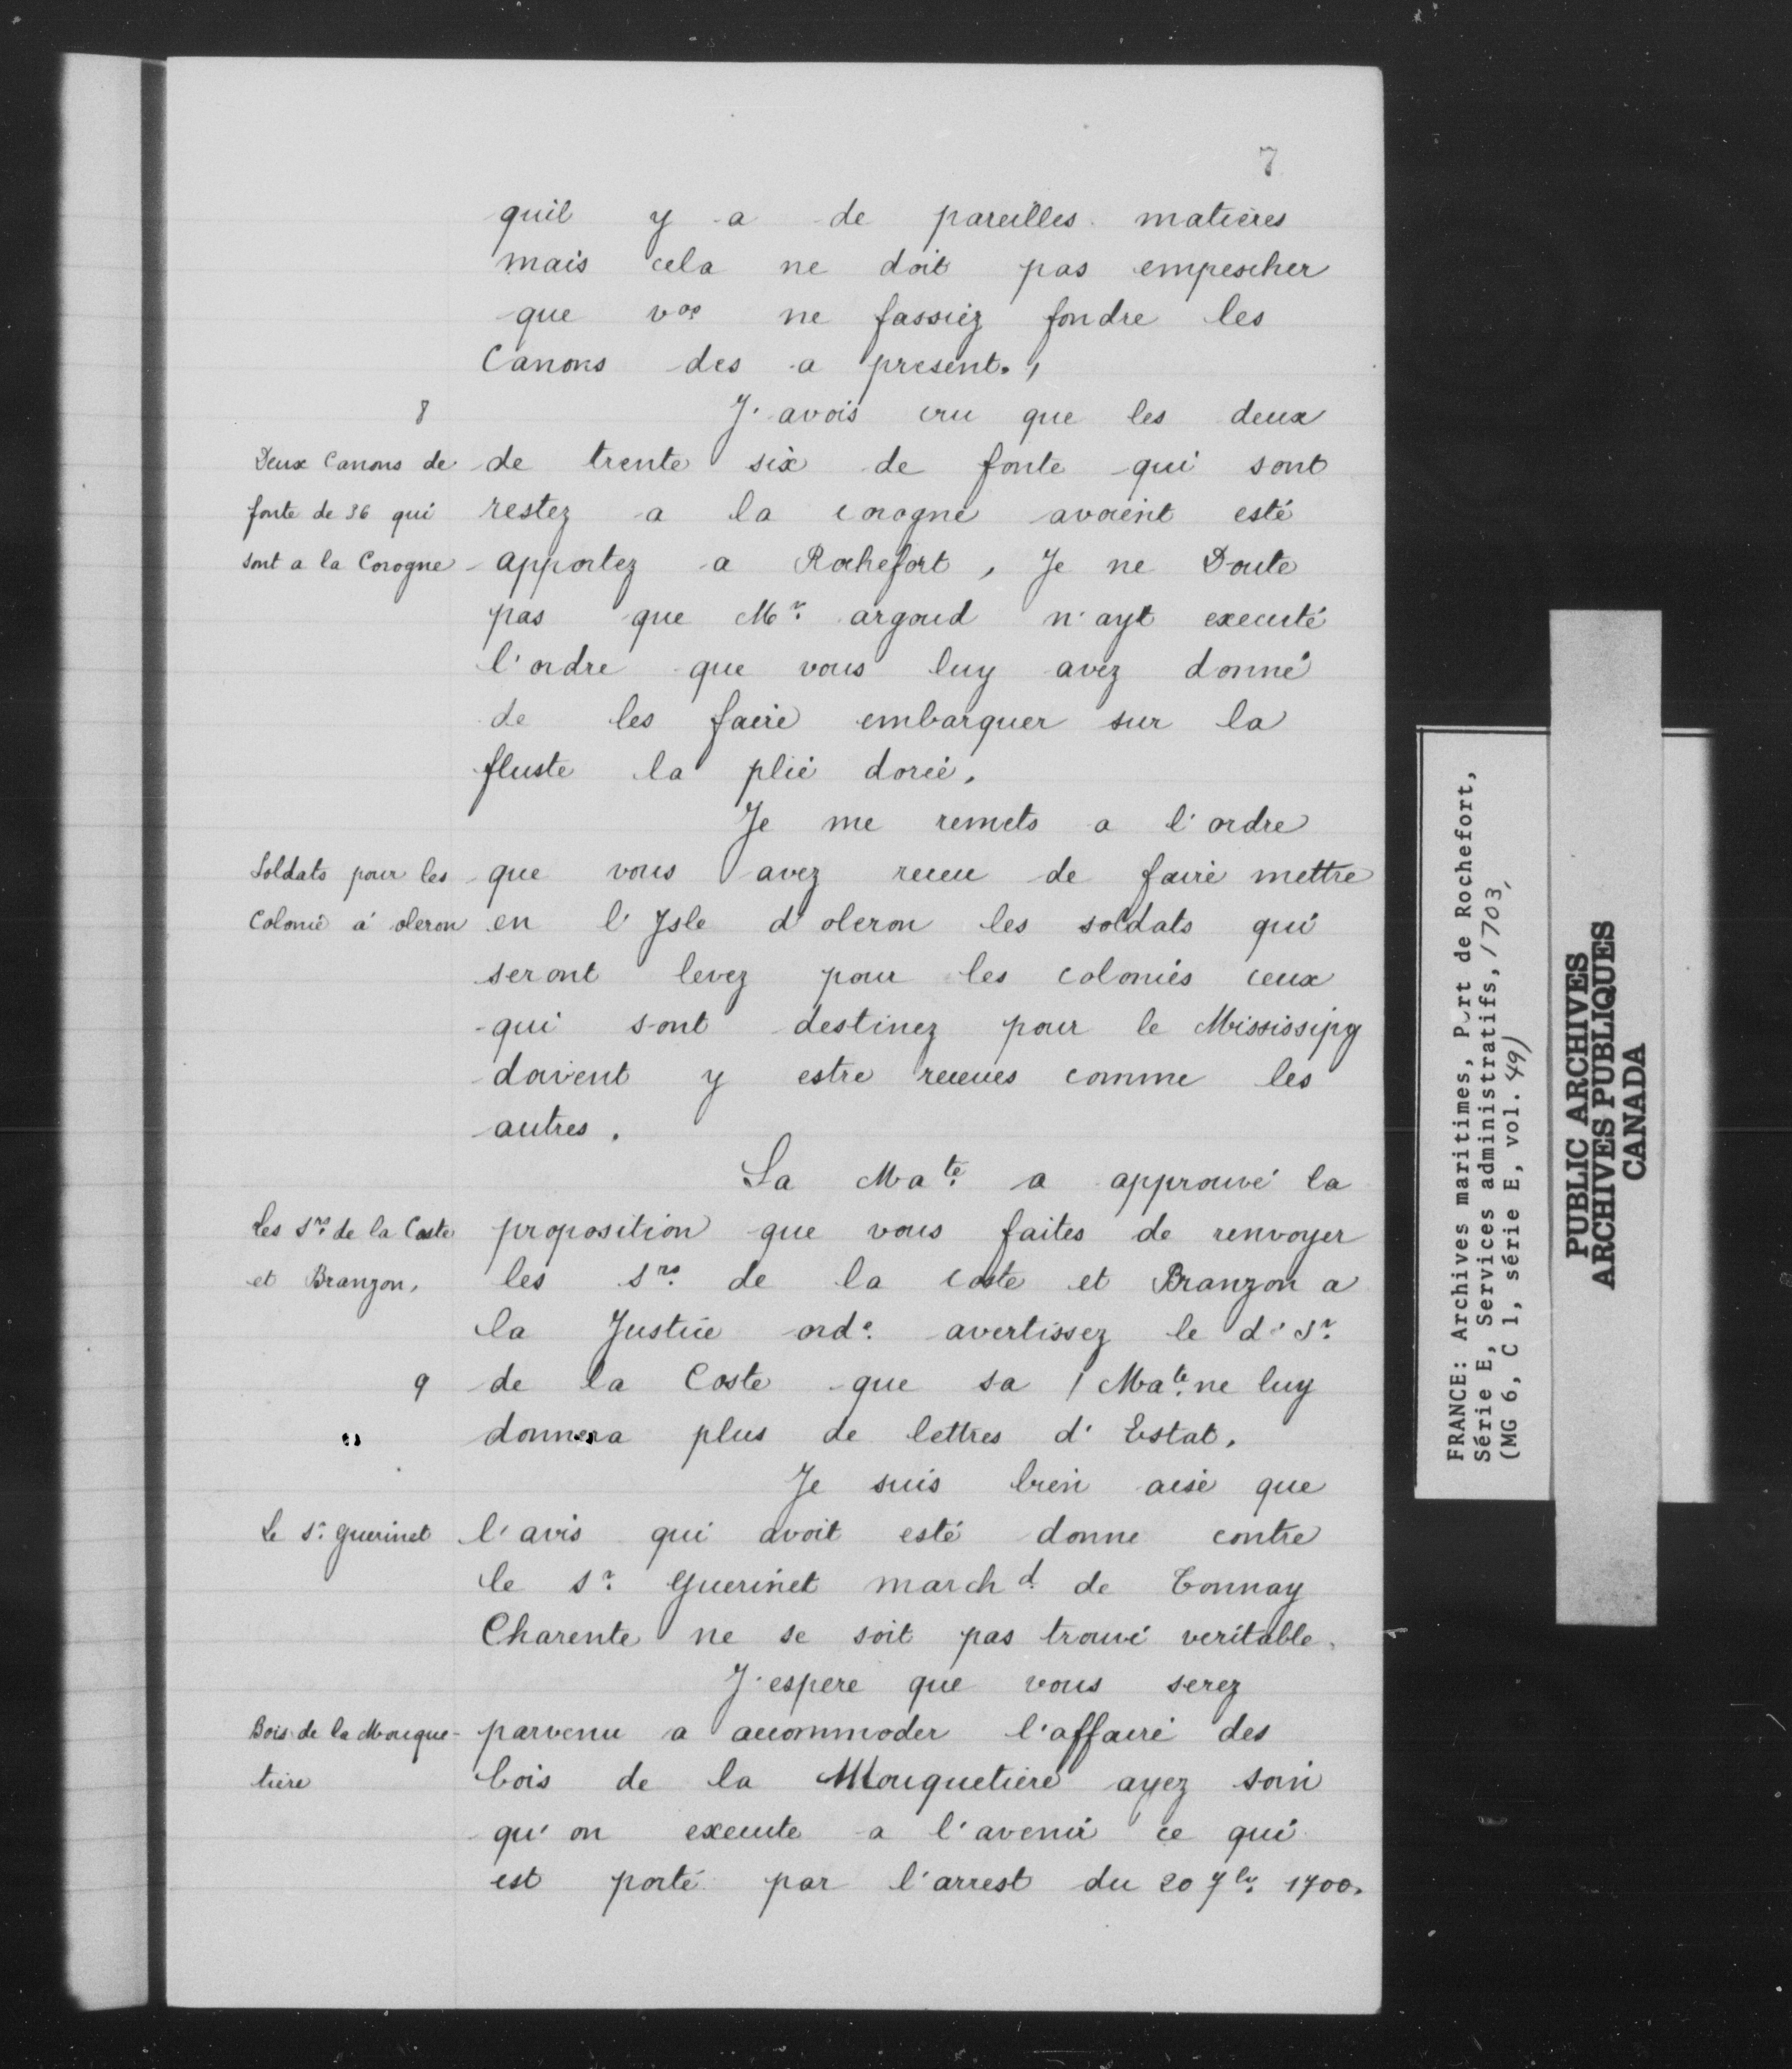 7
quil y a de pareilles matieres
mais cela ne doit pas empescher
que vos ne fassiez fondre les
Canons des a present.,
8
J'avois cru que les deux
Deux Canons de
fonte de 36 qui
sont a la Corogne
de trente six de fonte qui sont
restez a la corogne avoient esté
apportez a Rochefort, Je ne Doute
pas que Mr. argoud n'ayt executé
l'ordre que vous luy avez donné
de les faire embarquer sur la
fluste la plie dorée.
Je me remets a l'ordre
Soldats pour les
Colonie á oleron
que vous avez receu de faire mettre
en l'Isle d'oleron les soldats qui
seront levez pour les colonies ceux
qui sont destinez pour le Mississipy
doivent y estre receues comme les
autres.
Sa Mate. a approuvé la
Les Srs. de la Coste
et Branzon,
proposition que vous faites de renvoyer
les Srs. de la coste et Branzon a
la Justice orde. avertissez le d. Sr.
9
de la Coste que sa Mate. ne luy
donnera plus de lettres d'Estat.
Je suis bien aise que
Le Sr. Guerinet
l'avis qui avoit esté donne contre
le Sr. Guerinet marchd. de Tonnay
Charente ne se soit pas trouvé veritable.
J'espere que vous serez
Bois de la Mouque-
tiere
parvenu a accommoder l'affaire des
bois de la Mouquetiere ayez soin
qu'on execute a l'avenir ce qui
est porté par l'arrest du 20 7br. 1700.
FRANCE: Archives maritimes, Port de Rochefort,
Série E, Services administratifs, 1703,
(MG 6, C 1, série E, vol. 49)
PUBLIC ARCHIVES
ARCHIVES PUBLIQUES
CANADA